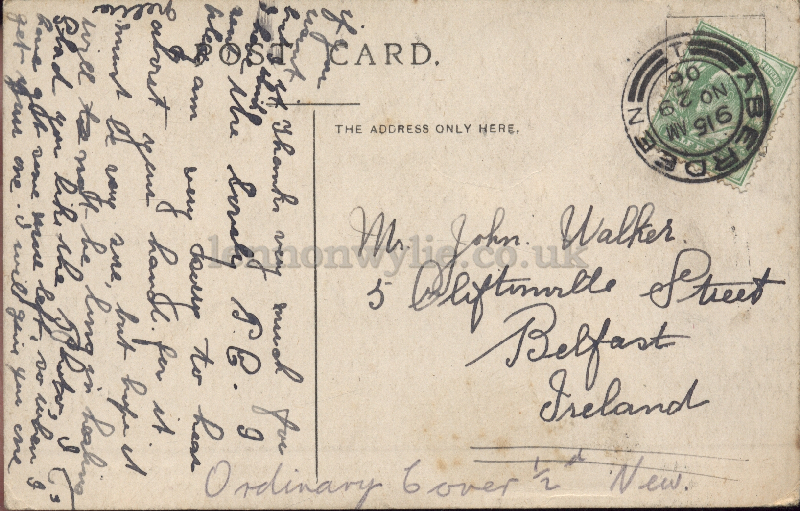 POST CARD.
THE ADDRESS ONLY HERE.
ABERDEEN
9 15 AM
NO 29
06
1
Mr. John. Walker.
5 Cliftonville Street
Belfast
Ireland
Ordinary Cover ½d New.
lennonwylie.co.uk
Thanks very much for
the lovely P.C. I
am very sorry to hear
about your hand. for it
must be very sore, but hope it
will not be long in healing
Glad you like the Photo, I
have got some more left, so when I
get you one. I will give you one
if you
want